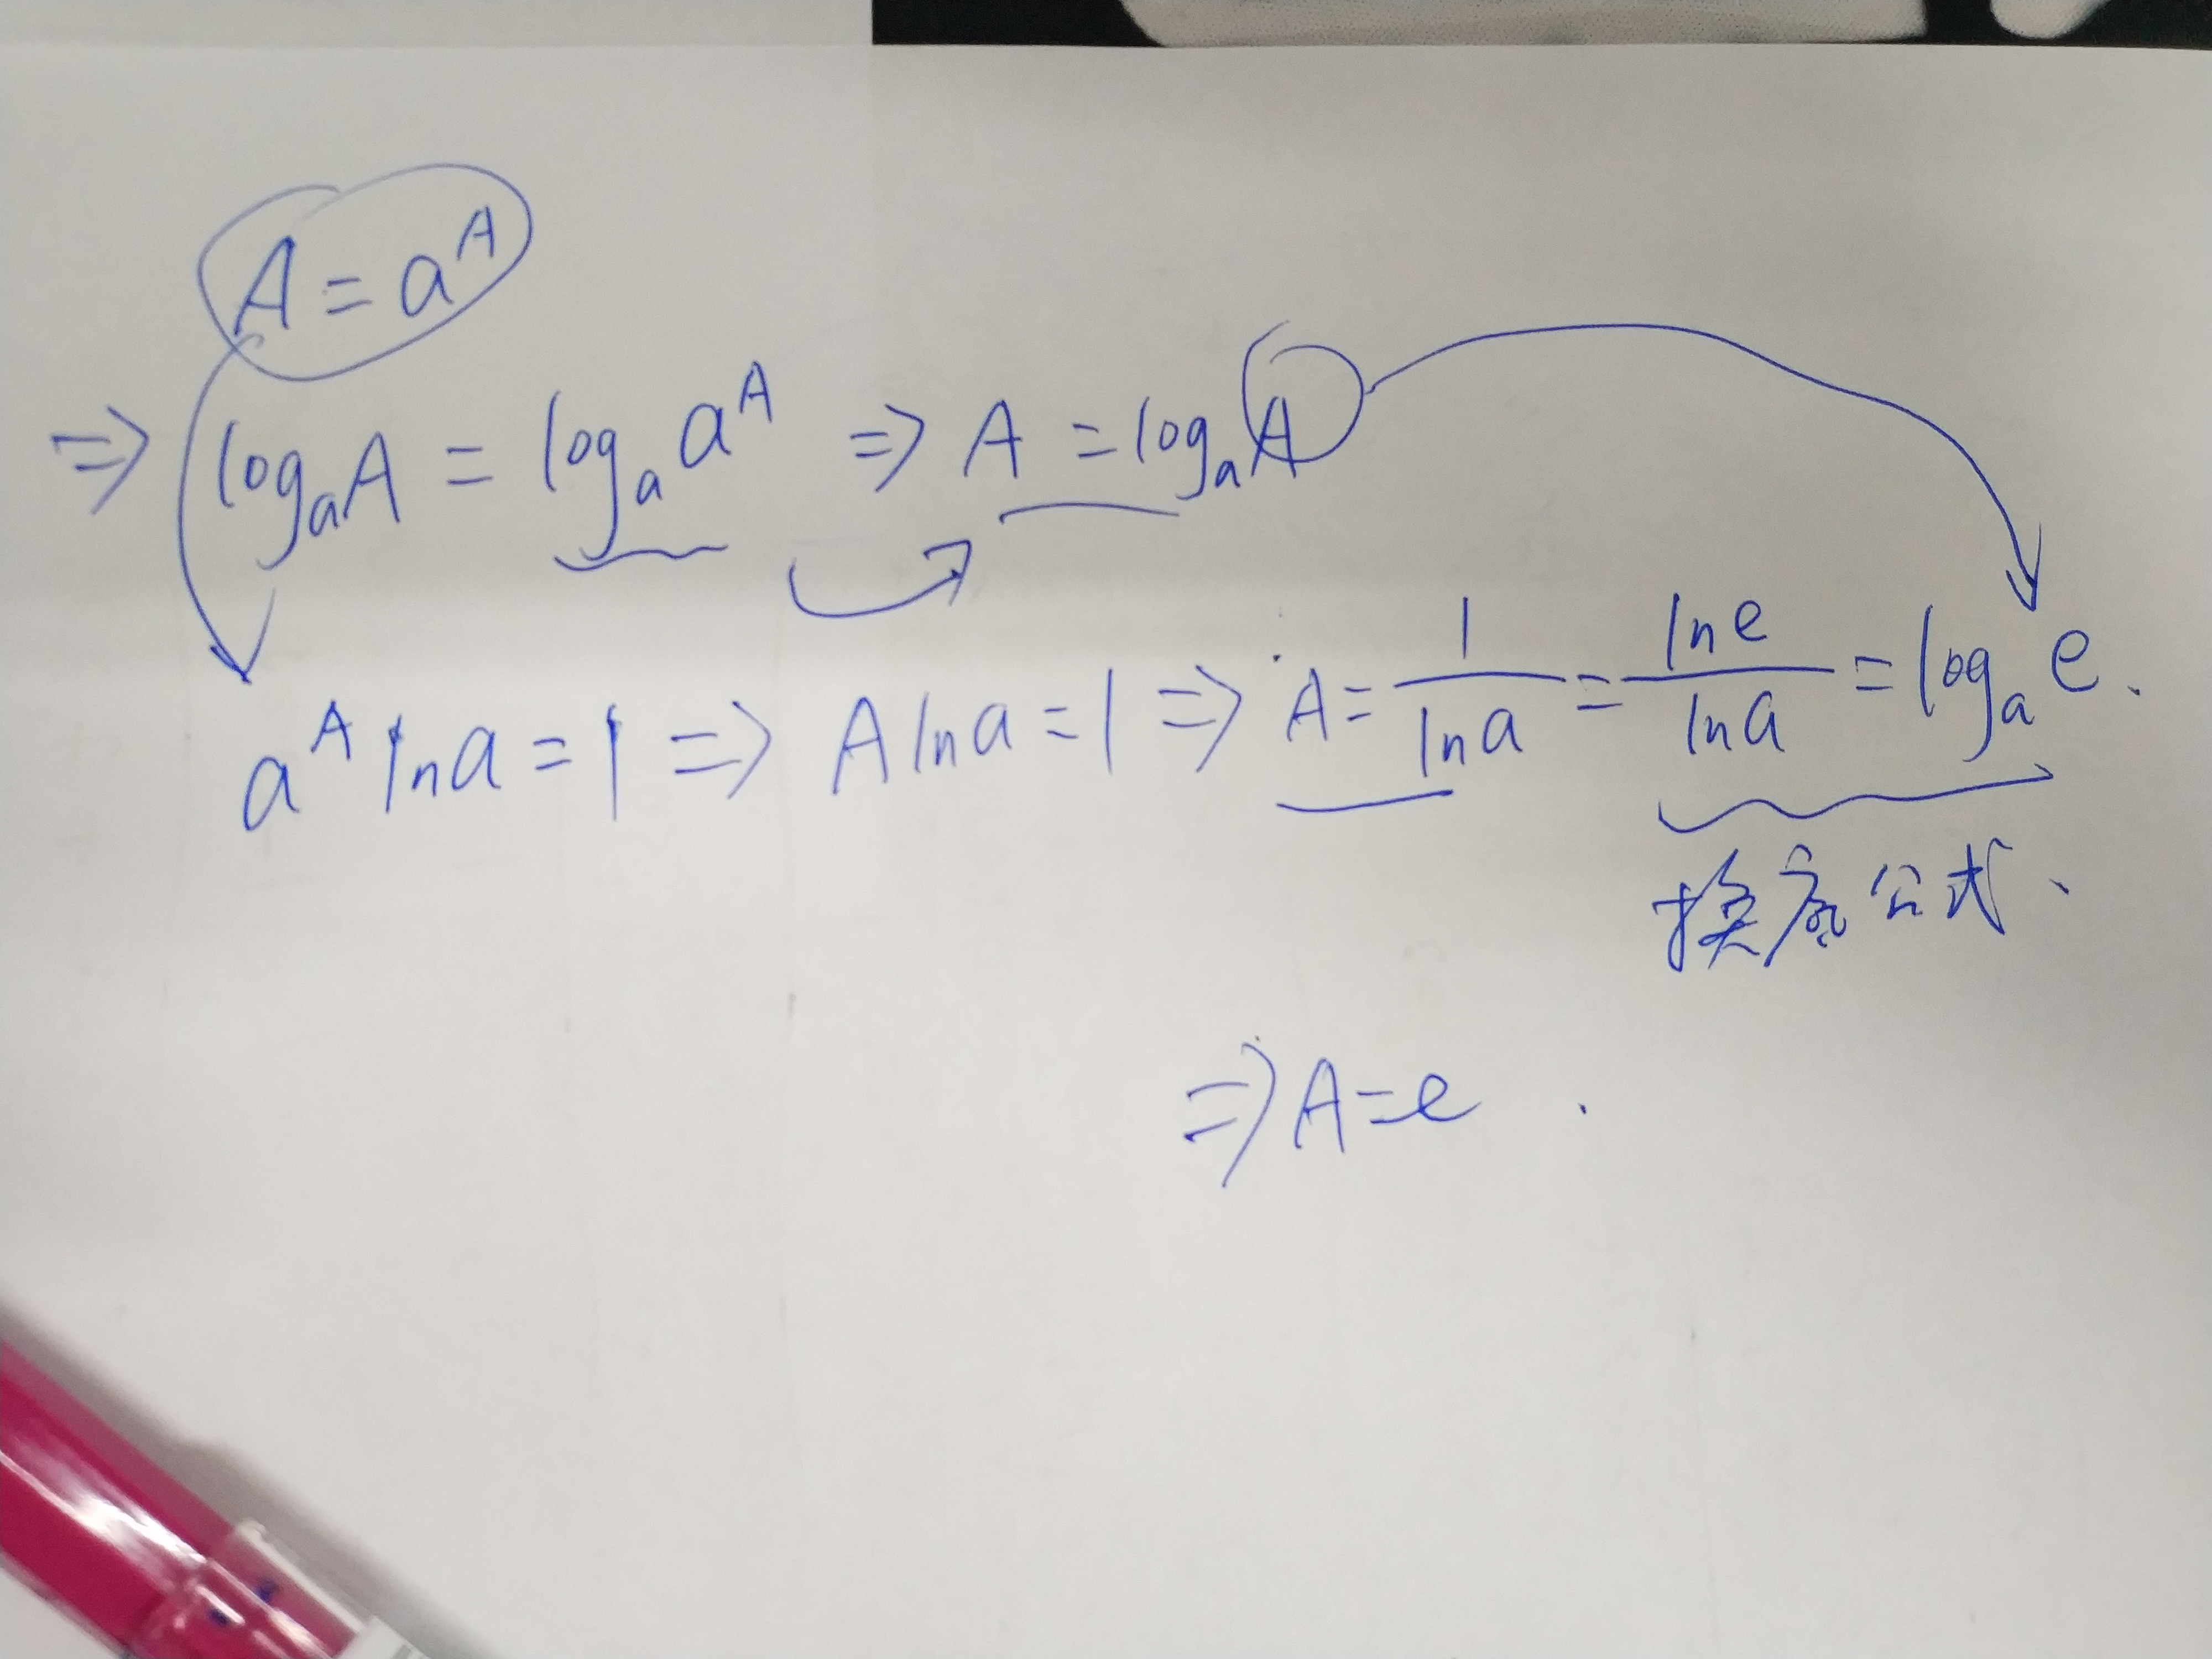 A = a^A
⇒ log_a A = log_a a^A ⇒ A = log_a A
a^A ln a = 1 ⇒ A ln a = 1 ⇒ A = 1/ln a = ln e/ln a = log_a e.
换底公式、
⇒ A = e .